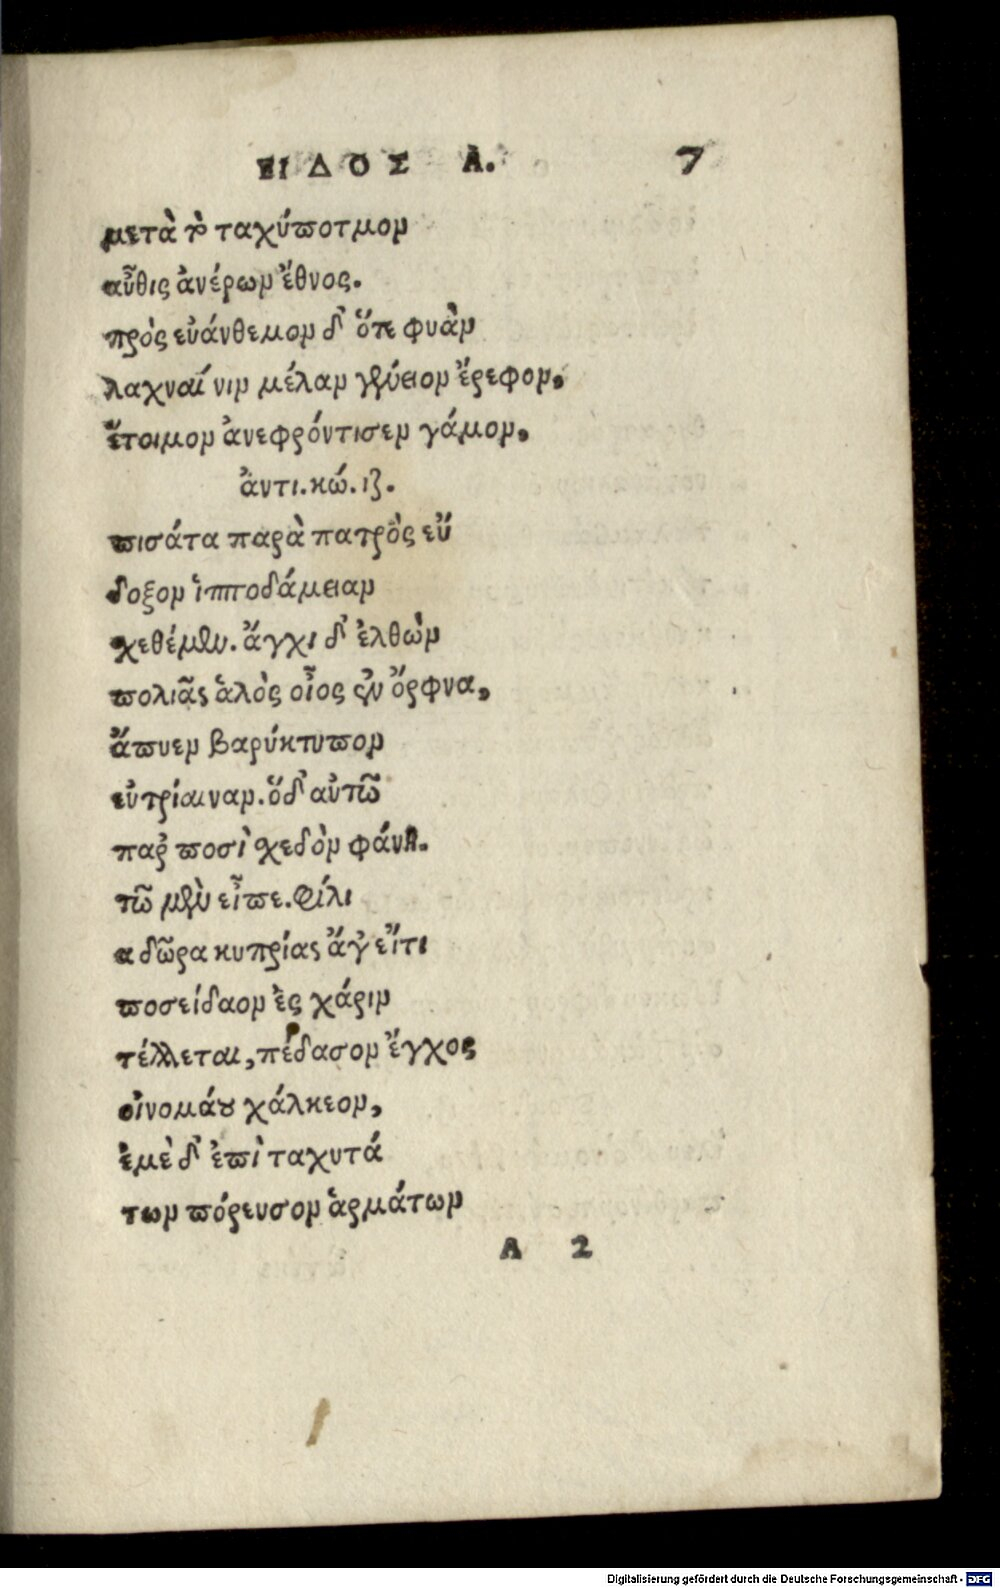 ΕΙΔΟΣ Α. 7
μετὰ τὸ ταχύποτμον
αὖθις ἀνέρων ἔθνος.
πρὸς εὐάνθεμον δ' ὅτε φυὰν
λάχναί νιν μέλαν γένειον ἔρεφον,
ἕτοιμον ἀνεφρόντισεν γάμον,
ἀντι. κώ. ιζ.
πισάτα παρὰ πατρὸς εὔ
δοξον ἱπποδάμειαν
σχεθέμεν. ἄγχι δ' ἐλθὼν
πολιᾶς ἁλὸς οἶος ἐν ὄρφνα,
ἄπυεν βαρύκτυπον
εὐτρίαιναν. ὅδ' αὐτῶ
παρ ποσὶ σχεδὸν φάνη.
τῶ μὲν εἶπε. Φίλι
α δῶρα κυπρίας ἄγ εἴτι
ποσείδαον ἐς χάριν
τέλλεται, πέδασον ἔγχος
οἰνομάου χάλκεον,
ἐμὲ δ' ἐπὶ ταχυτά
των πόρευσον ἁρμάτων
Α 2
Digitalisierung gefördert durch die Deutsche Forschungsgemeinschaft - DFG